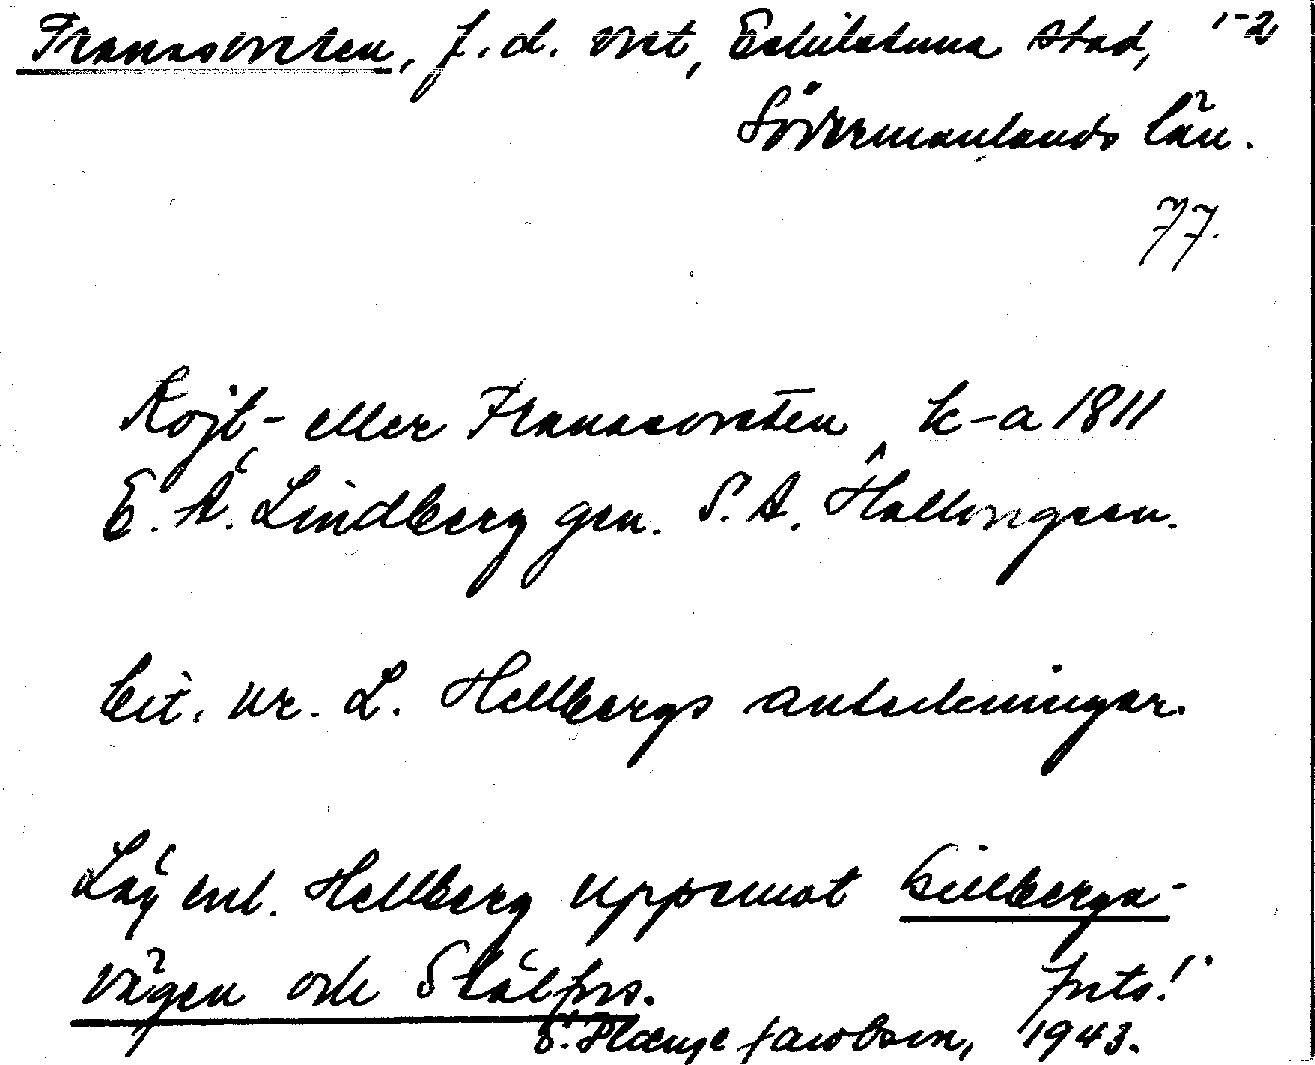 Fransvreten, f.d. vret, Eskilstuna stad, 1-2
Södermanlands län.
77.
Rojt- eller Fransvreten, k-a 1811
E. A. Lindberg gen. S. A. Hallongren.
cit. ur. L. Hellbergs anteckningar.
Låg enl. Hellberg uppemot Gillberga-
vägen och Stålfors. forts!
S. Hænge Jacobsen, 1943.